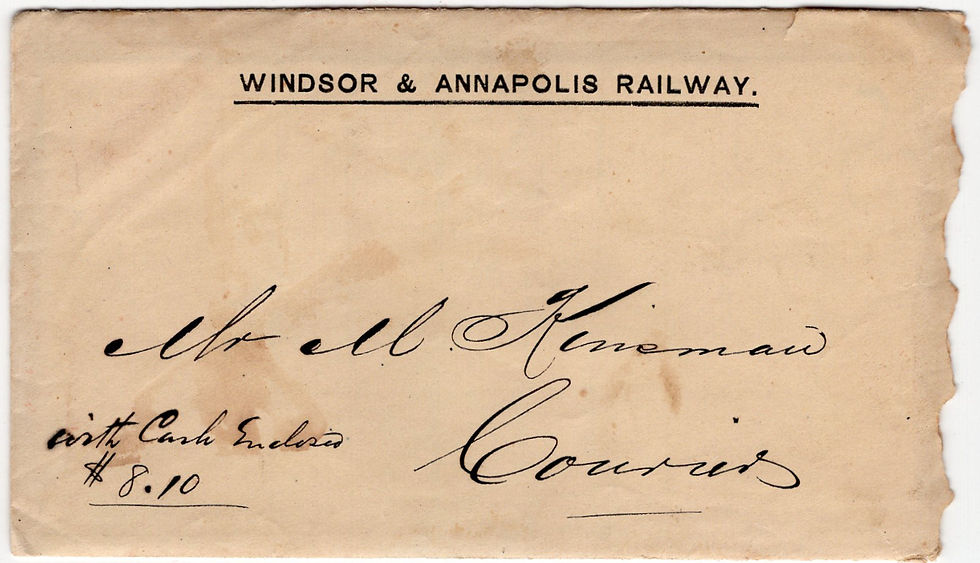 WINDSOR & ANNAPOLIS RAILWAY.
Mr M. Kinsman
Courier
with Cash Enclosed
$ 8.10